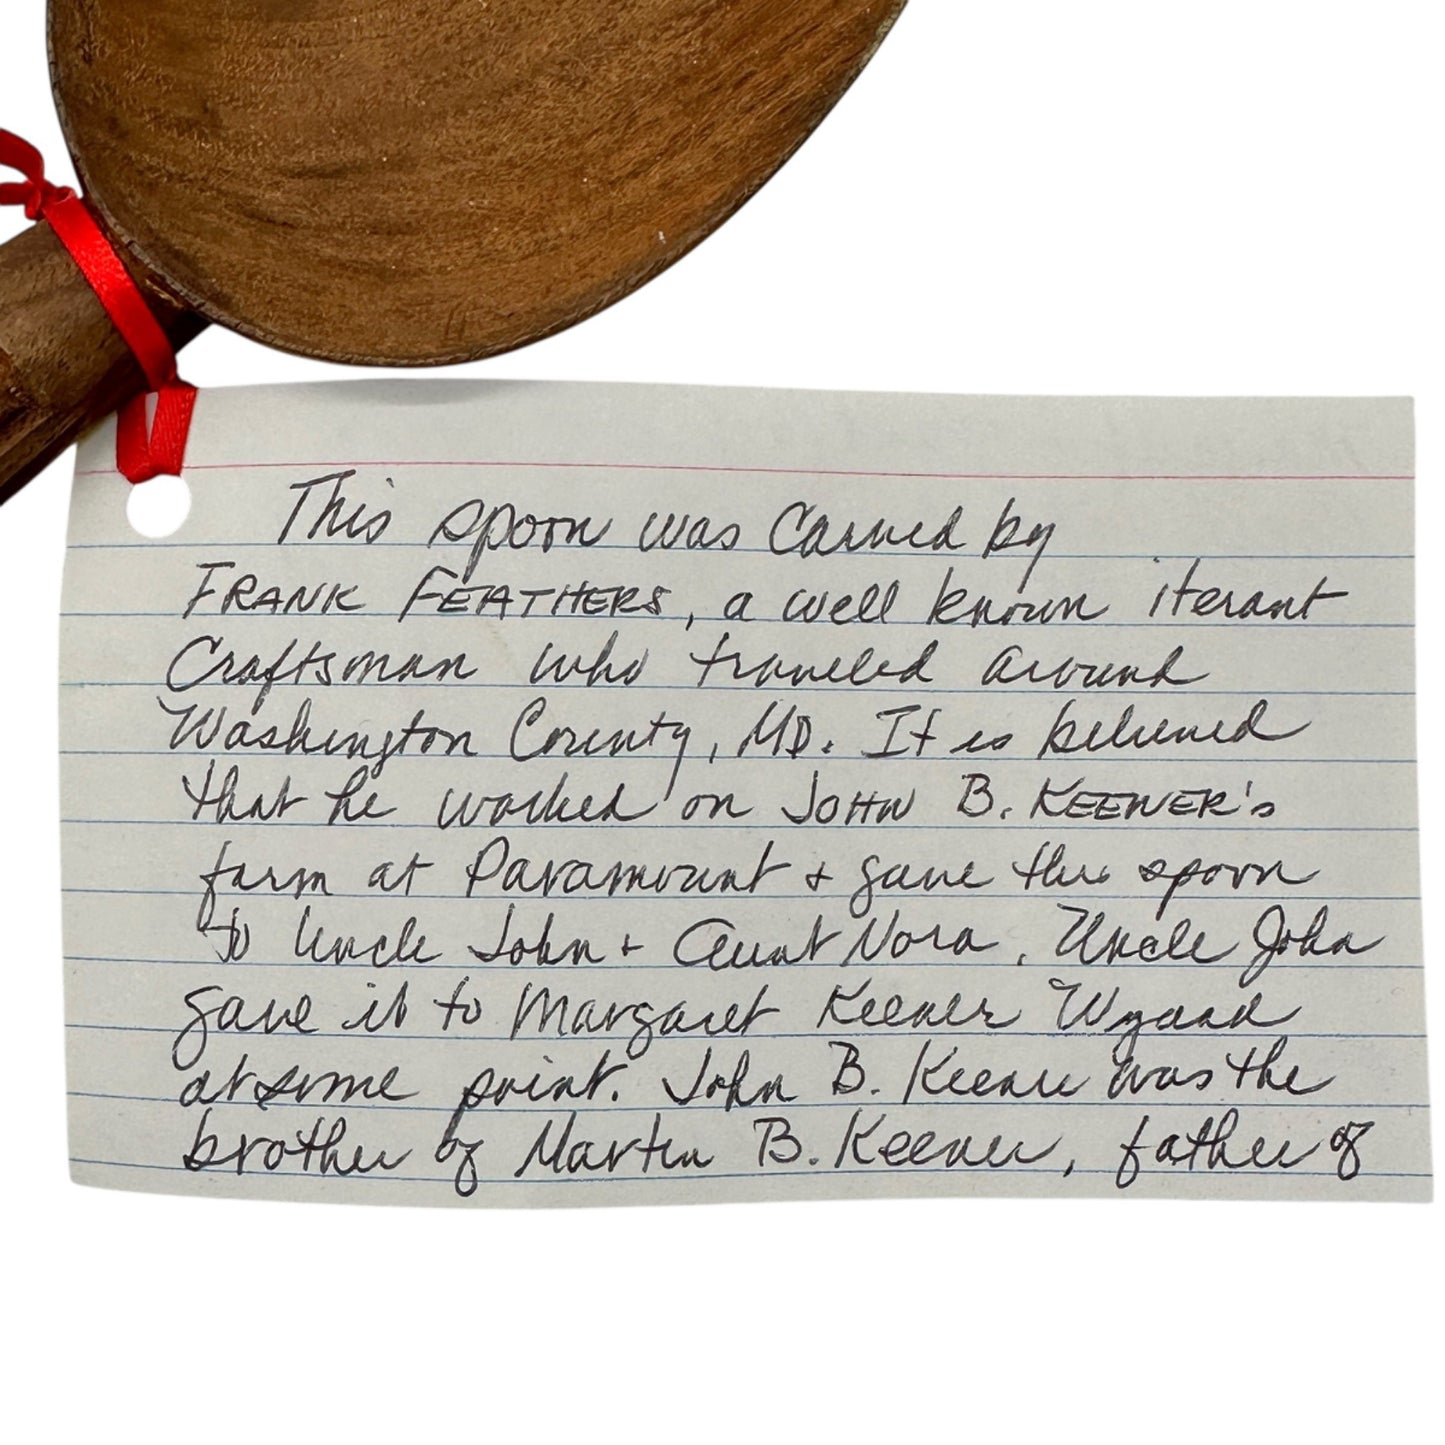 This spoon was carved by
FRANK FEATHERS, a well known iterant
Craftsman who traveled around
Washington County, MD. It is believed
that he worked on JOHN B. KEENER's
farm at Paramount + gave this spoon
to Uncle John + Aunt Nora. Uncle John
gave it to Margaret Keener Wyand
at some point. John B. Keener was the
brother of Martin B. Keener, father of